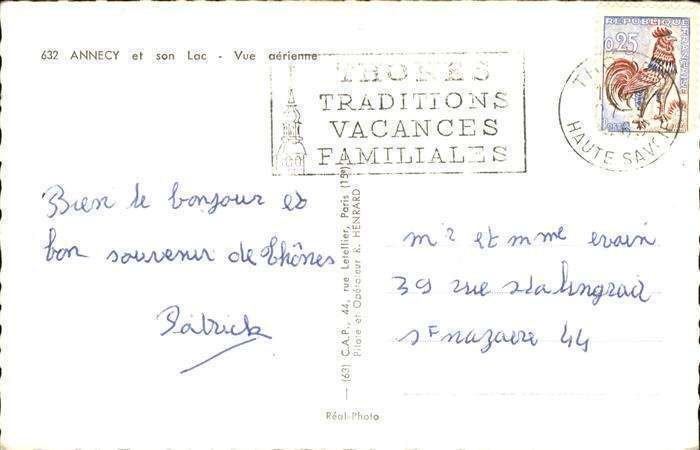 632 ANNECY et son Lac - Vue aérienne
THONES
TRADITIONS
VACANCES
FAMILIALES
REPUBLIQUE FRANÇAISE
0,25
HAUTE SAVOIE
Bien le bonjour et
bon souvenir de Thônes
Patrick
(63) C.A.P., 44, rue Letellier, Paris (15e)
Pilote et Opérateur R. HENRARD
Réal-Photo
mr et mme evain
39 rue stalingrad
st nazaire 44